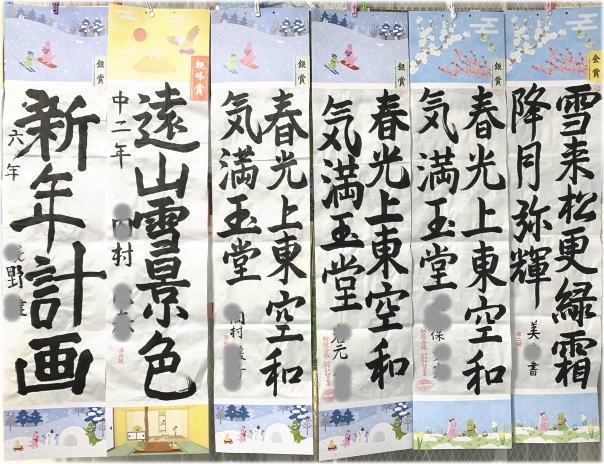 金賞
雪来松更緑霜
降月弥輝
美 書
銀賞
春光上東空和
気満玉堂
保
銀賞
春光上東空和
気満玉堂
元
銀賞
春光上東空和
気満玉堂
村
観峰賞
遠山雪景色
中二年
村
銀賞
新年計画
六年
野